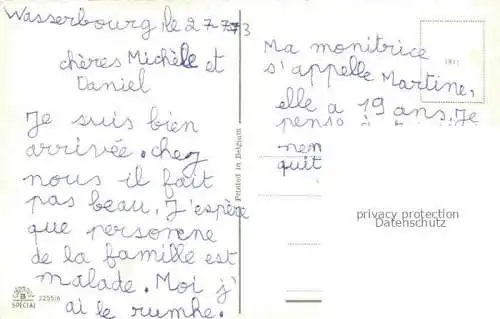 Wasserbourg le 2-7-73
chères Michèle et
Daniel
Je suis bien
arrivée. chez
nous il fait
pas beau. J'espère
que personne
de la famille est
malade. Moi j'
ai le rumhe.
Ma monitrice
s'appelle Martine,
elle a 19 ans. Je
pense à
nem
quit
Printed in Belgium
privacy protection
Datenschutz
SPECIAL